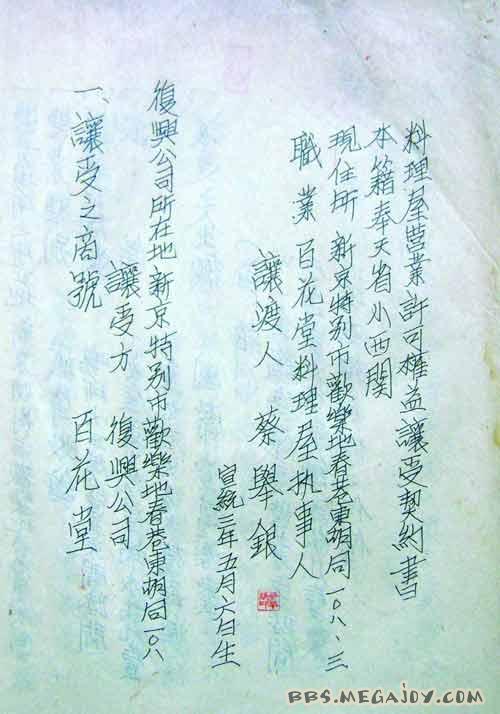 料理屋營業許可權益讓受契約書
本籍奉天省小西關
現住所 新京特别市歡樂地春巷東胡同一〇八、三
職業 百花堂料理屋执事人
讓渡人 蔡舉銀
宣統三年五月六日生
復興公司所在地 新京特别市歡樂地春巷東胡同一〇八
讓受方 復興公司
一、讓受之商號 百花堂
BBS.MEGAJOY.COM